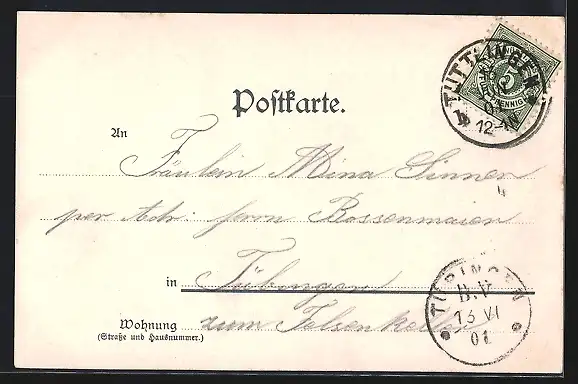 Postkarte.
TUTTLINGEN
5
PFENNIG
01
12-1N
An
Fräulein Mina Sinner
per Adr: Herrn Bossenmaier
in Tübingen
TUEBINGEN
B.V
13 VI
01
Wohnung zum Felsenkeller
(Straße und Hausnummer.)